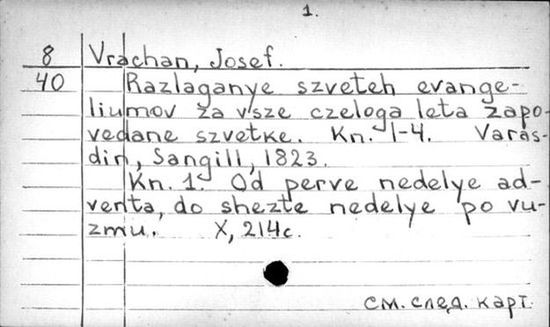 1.
8 Vrachan, Josef.
40 Razlaganye szveteh evange-
liumov za vsze czeloga leta zapo-
vedane szvetke. Kn. 1-4. Varas-
din, Sangill, 1823.
Kn. 1. Od perve nedelye ad-
venta, do shezte nedelye po vu-
zmu. X, 214c.
см. след. карт.